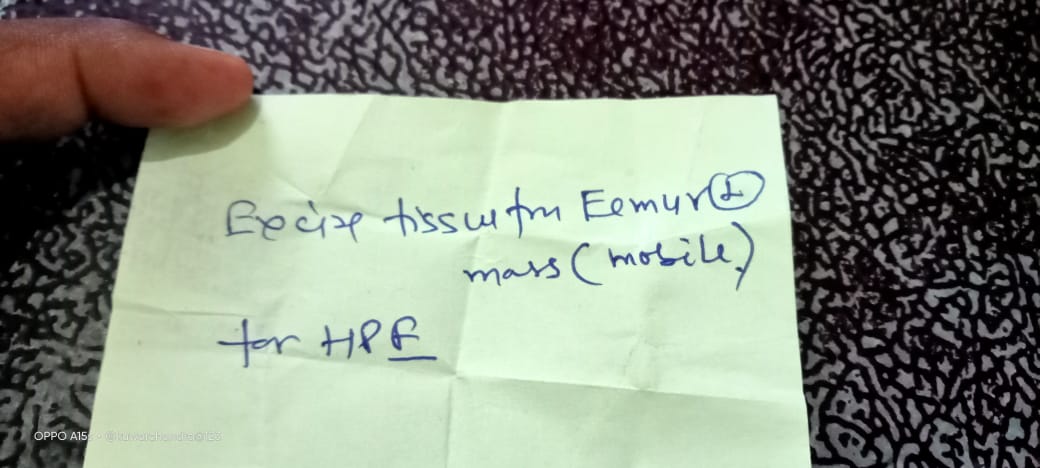 Excise tissue frm Femur Ⓛ
mass (mobile)
for HPE
OPPO A15s